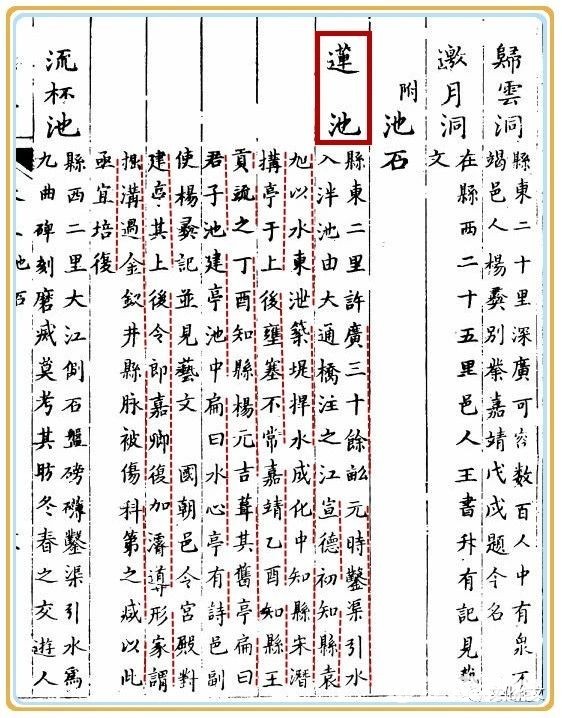 歸雲洞 縣東二十里深廣可容数百人中有泉不
竭邑人楊彝别業嘉靖戊戌題今名
邀月洞 在縣西二十五里邑人王書升有記見藝
文
附 池石
蓮池 縣東二里許廣三十餘畆元時鑿渠引水
入泮池由大通橋注之江宣德初知縣袁
旭以水東泄築堤捍水成化中知縣宋潛
搆亭于上後壅塞不常嘉靖乙酉知縣王
貢疏之丁酉知縣楊元吉葺其舊亭扁曰
君子池建亭池中扁曰水心亭有詩邑副
使楊彝記並見藝文 國朝邑令宮殿對
建亭其上後令郎嘉卿復加濬導形家謂
掘溝過金釵井縣脉被傷科第之减以此
亟宜培復
流杯池 縣西二里大江側石盤磅礴鑿渠引水為
九曲碑刻磨滅莫考其昉冬春之交遊人